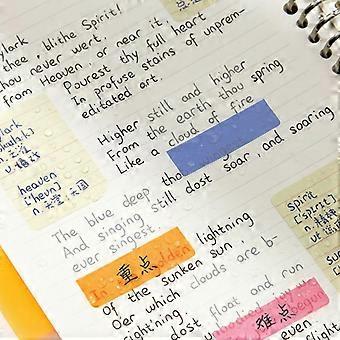 ylark
thee, blithe Spirit!
thou never wert,
from Heaven, or near it,
Pourest thy full heart
In profuse stains of unprem-
editated art.
Higher still and higher
From the earth thou spring
Like a cloud of fire
The blue deep
And singing still dost soar, and soaring
ever singest.
In golden lightning
Of the sunken sun,
O'er which clouds are b-
dost float and run
begun
重点
难点
heaven
['hevn]
n.天堂,天国
spirit
['spirit]
n.精神